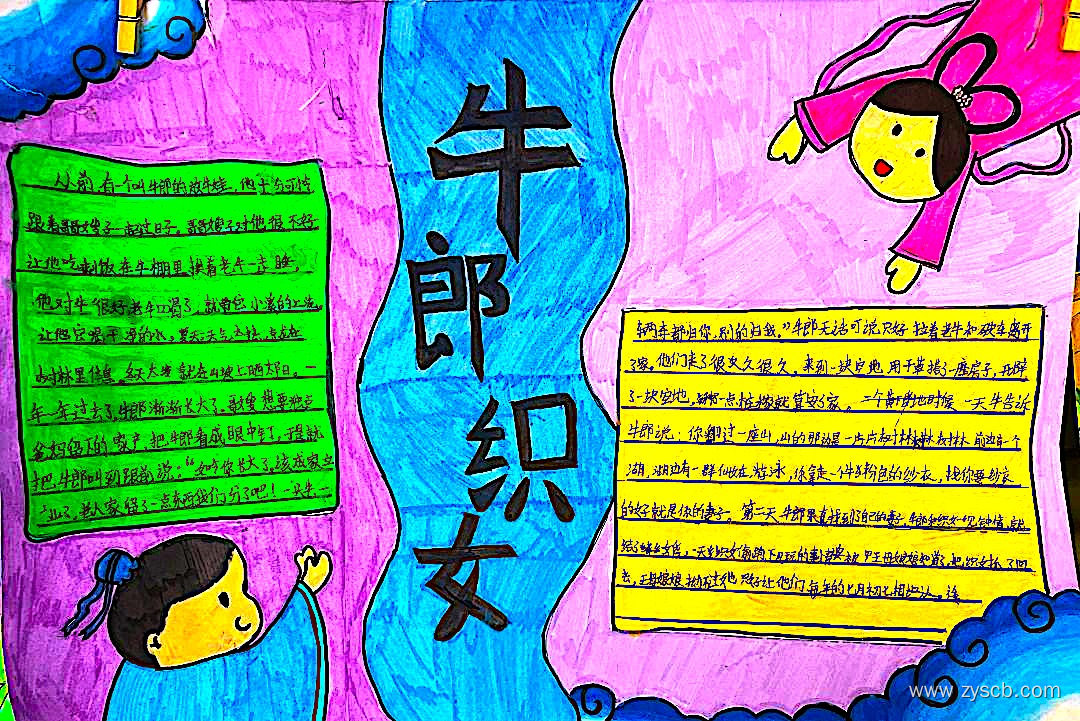 牛郎织女
从前,有一个叫牛郎的放牛娃,他十分可怜
跟着哥哥嫂子一起过日子。哥哥嫂子对他很不好
让他吃剩饭在牛棚里挨着老牛一起睡。
他对牛很好老牛口渴了,就带它小溪的上流
让他它喝干净的水。夏天天气太热,总在
树林里休息。冬天 就在山坡上晒太阳。一
年一年过去了,牛郎渐渐长大了。哥嫂想要独占
爸妈留下的家产,把牛郎看成眼中钉,于是就
把牛郎叫到跟前说:“如今你长大了,该成家立
业了,老人家留了一点东西我们分了吧!一头牛
车两车都归你,别的归我。”牛郎无话可说只好拉着老牛和破车离开
了家。他们走了很久又久很久。来到一块空地 用干草搭了一座房子,开辟
了一块空地, 一点 就算安了家。 时候 一天牛告诉
牛郎说:你翻过一座山,山的那边是一片片树林 树林 前边有一个
湖,湖边有一群仙女在游泳,你拿走一个件粉色的纱衣,找你要纱衣
的好就是你的妻子。第二天牛郎果真找到了自己的妻子,牛郎和织女一见钟情,就
去,王母娘娘 只好让他们每年的七月初七相见 。
www.zyscb.com